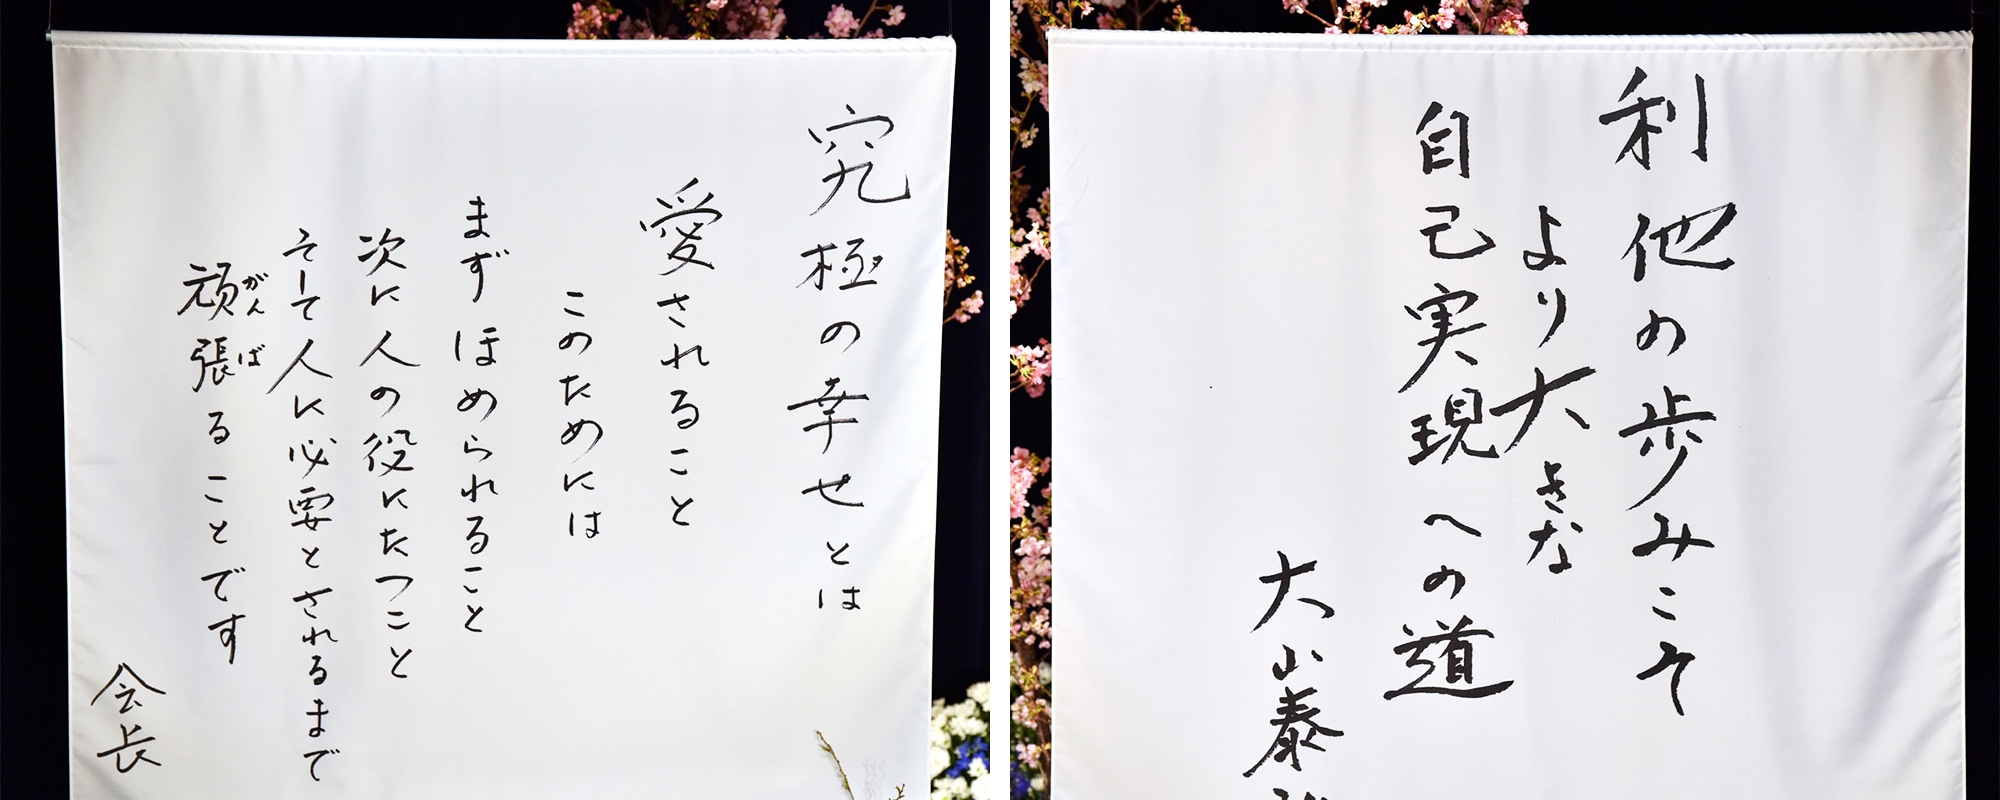 究極の幸せとは
愛されること
このためには
まずほめられること
次に人の役にたつこと
そして人に必要とされるまで
頑張ることです
がんば
会長
利他の歩みこそ
より大きな
自己実現への道
大山泰